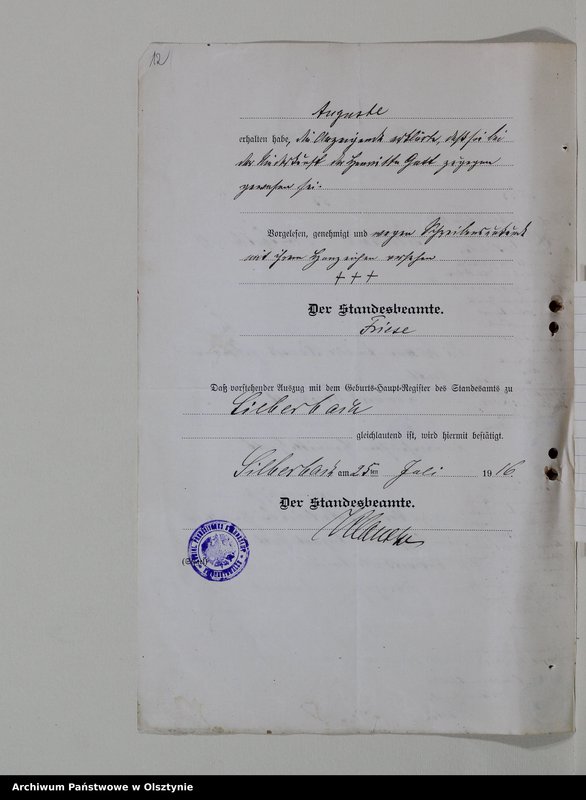 12
Auguste
erhalten habe, die Anzeigende erklärte, daß sie bei
der Niederkunft der Henriette Gatt zugegen
gewesen sei.
Vorgelesen, genehmigt und wegen Schreibensunkunde
mit ihrem Handzeichen versehen
+ + +
Der Standesbeamte.
Friese
Daß vorstehender Auszug mit dem Geburts-Haupt-Register des Standesamts zu
Silberbach
gleichlautend ist, wird hiermit bestätigt.
Silberbach am 25ten Juli 1916.
Der Standesbeamte.
Archiwum Państwowe w Olsztynie